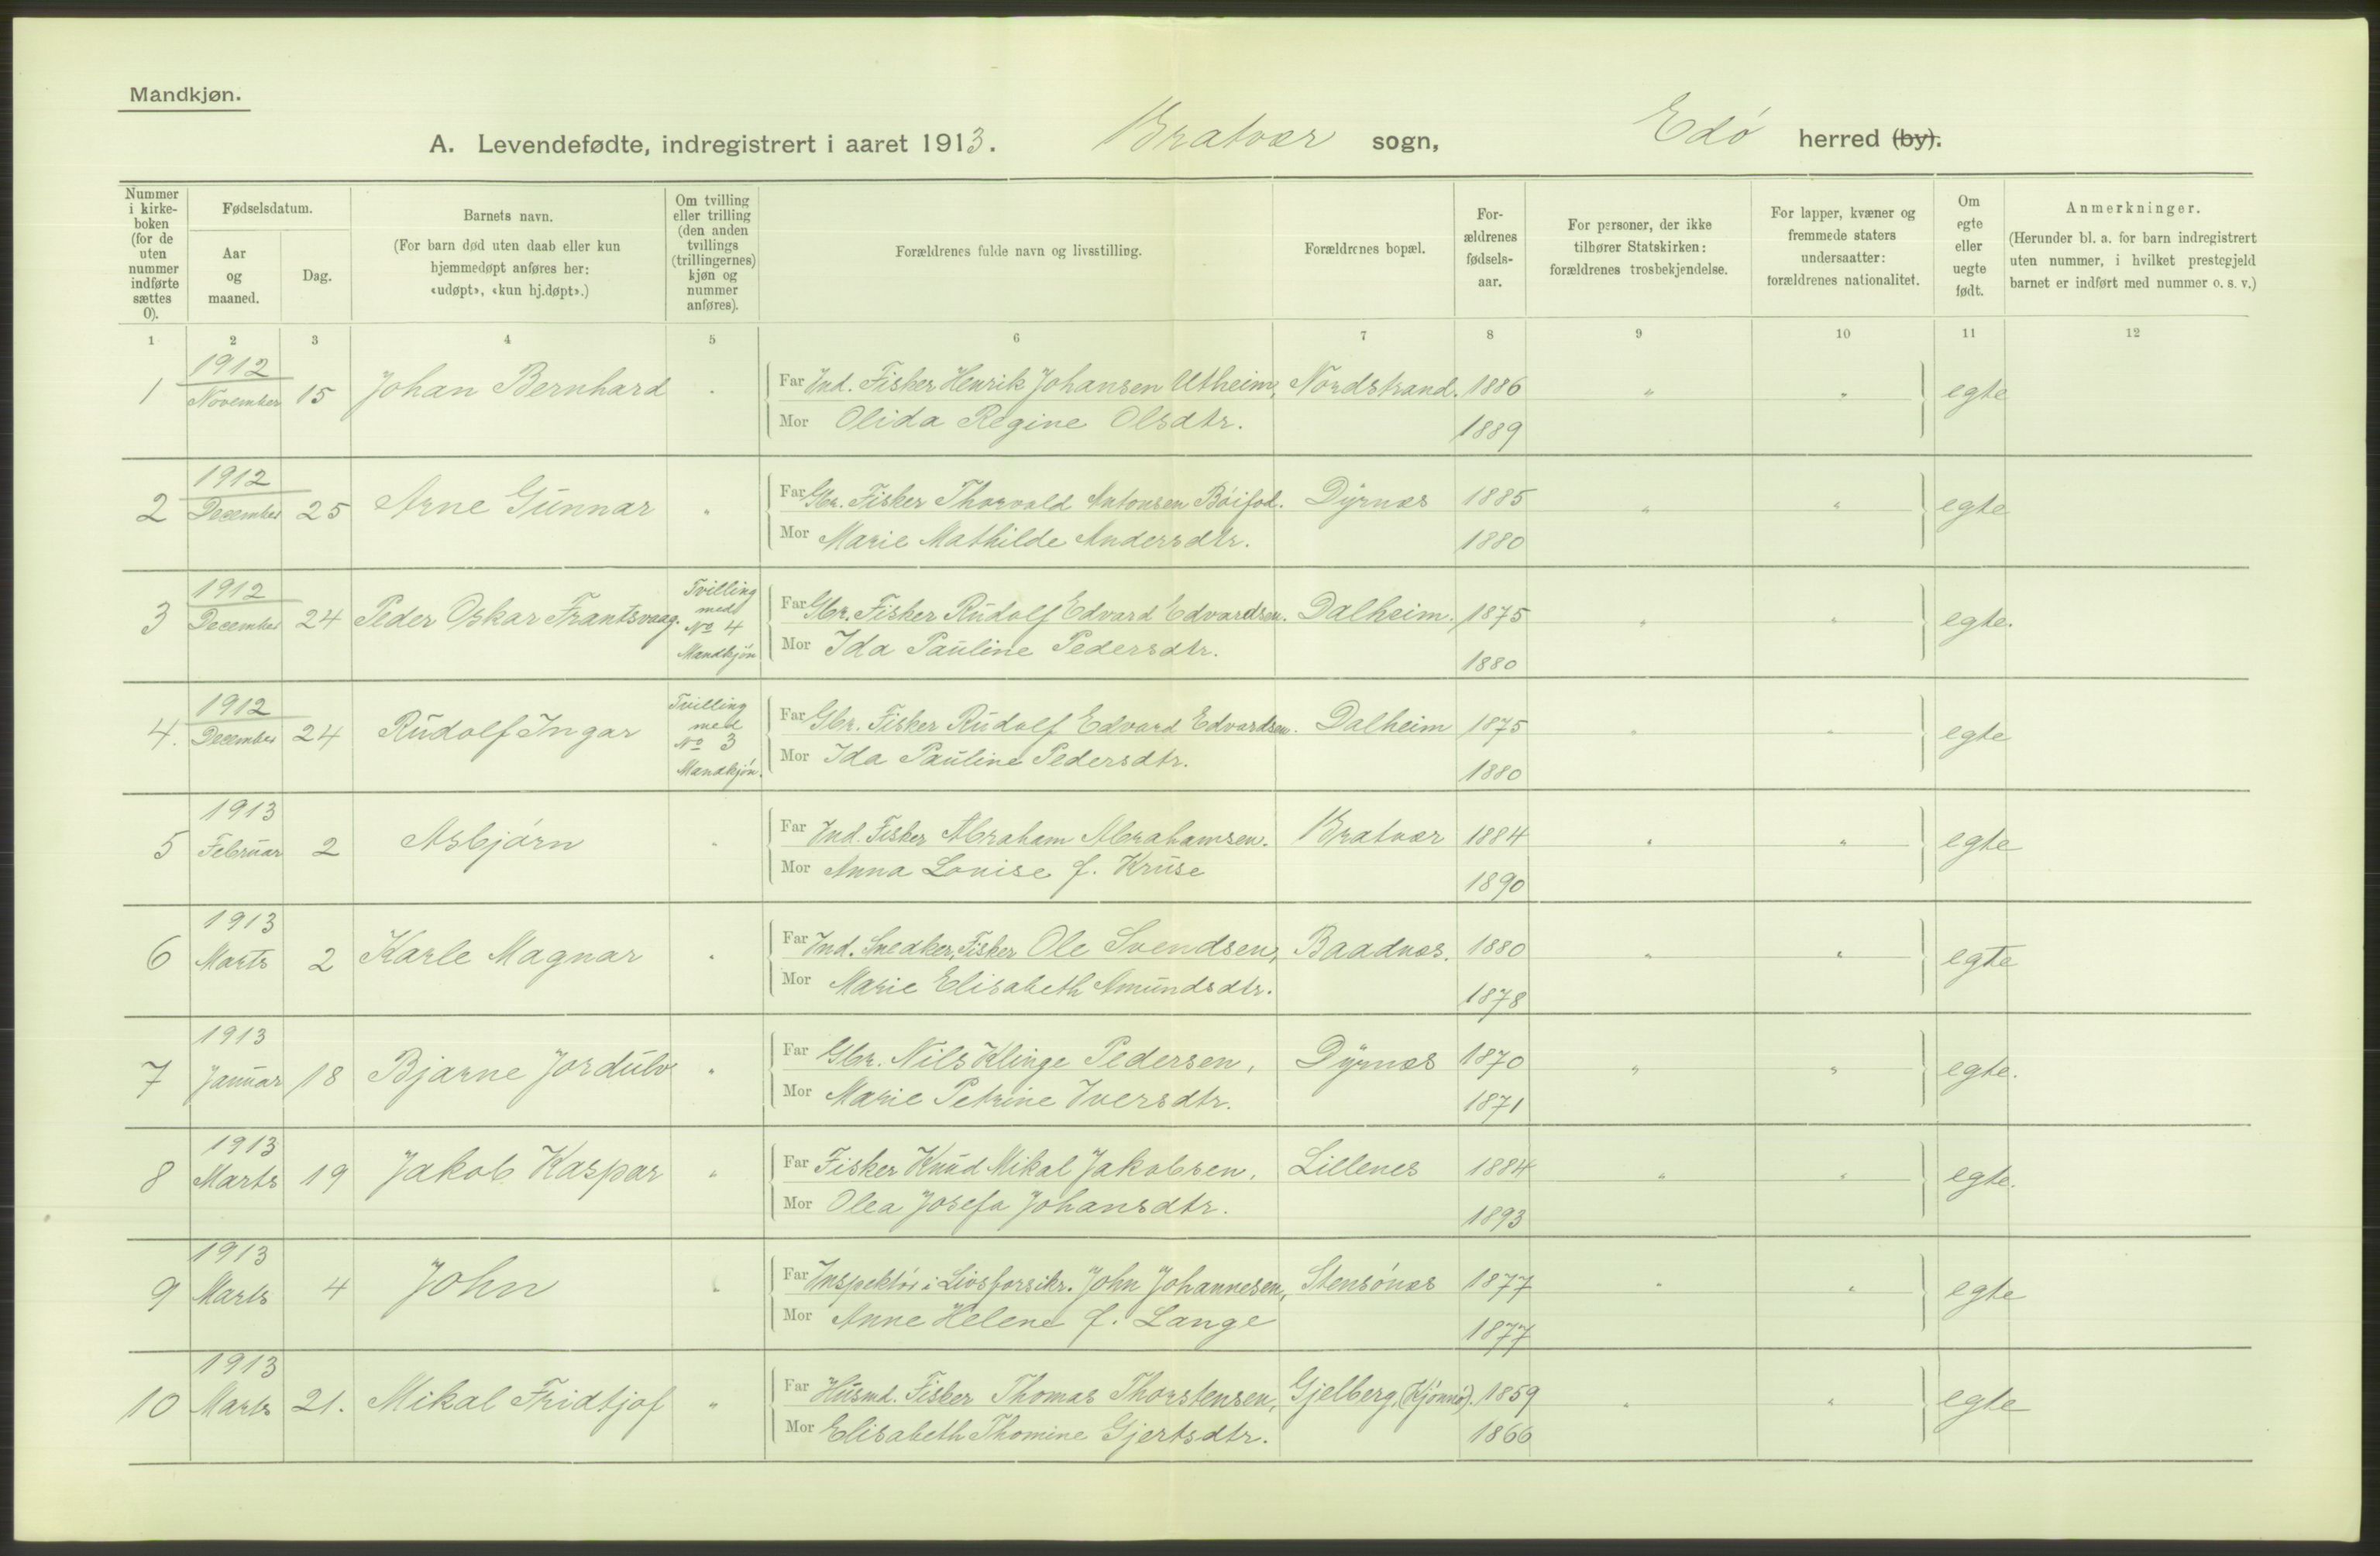 Mandkjøn.
A. Levendefødte, indregistrert i aaret 1913. Bratvær sogn, Edø herred (by).
Nummer i kirke-boken (for de uten nummer indførte sættes 0).
Fødselsdatum.
Aar og maaned.
Dag.
Barnets navn.
(For barn død uten daab eller kun hjemmedøpt anføres her: «udøpt», «kun hj.døpt».)
Om tvilling eller trilling (den anden tvillings (trillingernes) kjøn og nummer anføres).
Forældrenes fulde navn og livsstilling.
Forældrenes bopæl.
For-ældrenes fødsels-aar.
For personer, der ikke tilhører Statskirken: forældrenes trosbekjendelse.
For lapper, kvæner og fremmede staters undersaatter: forældrenes nationalitet.
Om egte eller uegte født.
Anmerkninger.
(Herunder bl. a. for barn indregistrert uten nummer, i hvilket prestegjeld barnet er indført med nummer o. s. v.)
1 2 3 4 5 6 7 8 9 10 11 12
1 1912 November 15 Johan Bernhard " Far Ind. Fisker Henrik Johansen Utheim, Nordstrand. 1886 " " egte
Mor Olida Regine Olsdtr. 1889
2 1912 December 25 Arne Gunnar " Far Gbr. Fisker Thorvald Antonsen Bøifod. Dyrnæs 1885 " " egte
Mor Marie Mathilde Andersdtr. 1880
3 1912 December 24 Peder Oskar Frantsvaag. Tvilling med No 4 Mandkjøn Far Gbr. Fisker Rudolf Edvard Edvardsen. Dalheim. 1875 " " egte.
Mor Ida Pauline Pedersdtr. 1880
4. 1912 December 24 Rudolf Ingar Tvilling med No 3 Mandkjøn. Far Gbr. Fisker Rudolf Edvard Edvardsen. Dalheim 1875 " " egte
Mor Ida Pauline Pedersdtr. 1880
5 1913 Februar 2 Asbjørn " Far Ind. Fisker Abraham Abrahamsen. Bratvær 1884 " " egte
Mor Anna Louise f. Kruse 1890
6 1913 Marts 2 Karle Magnar " Far Ind. Snedker, Fisker Ole Svendsen, Baadnæs. 1880 " " egte
Mor Marie Elisabeth Amundsdtr. 1878
7 1913 Januar 18 Bjarne Jordulv " Far Gbr. Nils Klinge Pedersen, Dyrnæs 1870 " " egte.
Mor Marie Petrine Iversdtr. 1871
8 1913 Marts 19 Jakob Kaspar " Far Fisker Knud Mikal Jakobsen, Lillenes 1884 " " egte.
Mor Olea Josefa Johansdtr. 1893
9 1913 Marts 4 John " Far Inspektør i Livsforsikr. John Johannesen, Stensønæs 1877 " " egte
Mor Anne Helene f. Lange 1877
10 1913 Marts 21. Mikal Fridtjof " Far Husmd. Fisker Thomas Thorstensen, Gjelberg, (Kjønnø). 1859 " " egte
Mor Elisabeth Thomine Gjertsdtr. 1866